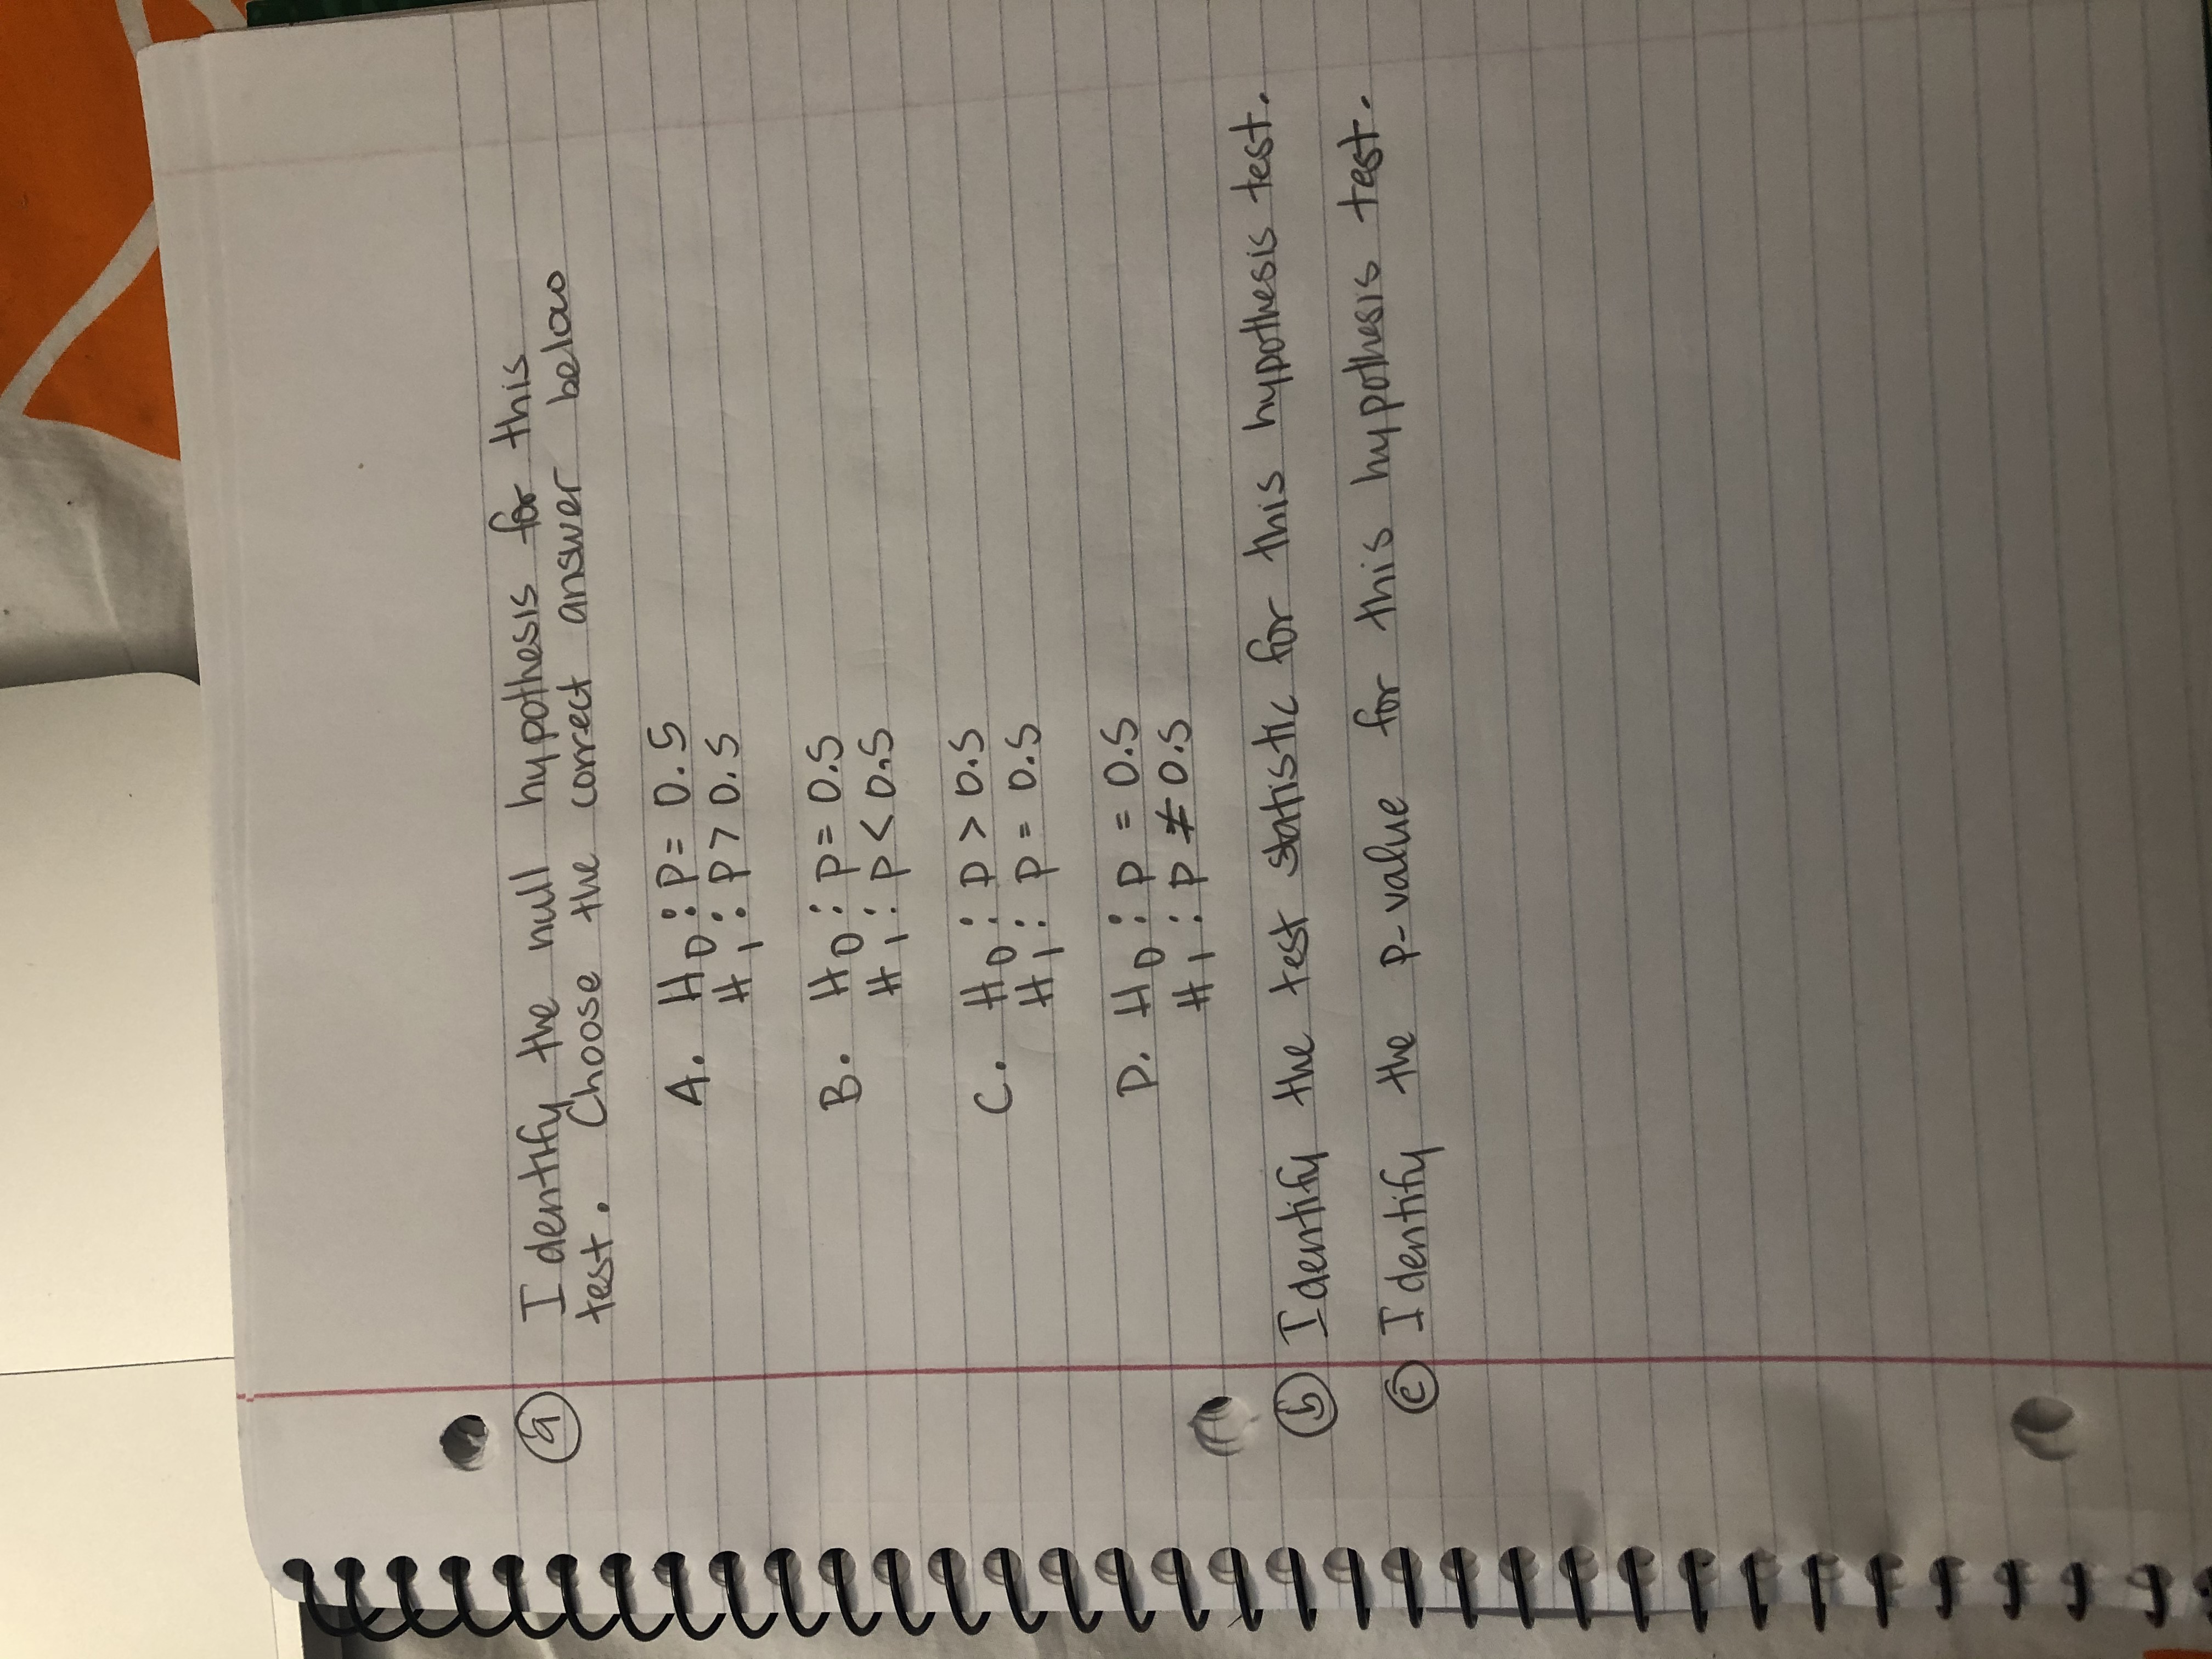 a Identify the null hypothesis for this
test. Choose the correct answer below
A. H0: P = 0.5
H1: P > 0.5
B. H0: P = 0.5
H1: P < 0.5
C. H0: P > 0.5
H1: P = 0.5
D. H0: P = 0.5
H1: P ≠ 0.5
b Identify the test statistic for this hypothesis test.
c Identify the P-value for this hypothesis test.